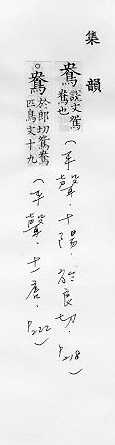 集韻
鴦 說文鴛
鴦也
(平聲．十陽．於良切．P218)
。鴦 於郎切鴛鴦
匹鳥文十九
(平聲．十一唐．P222)